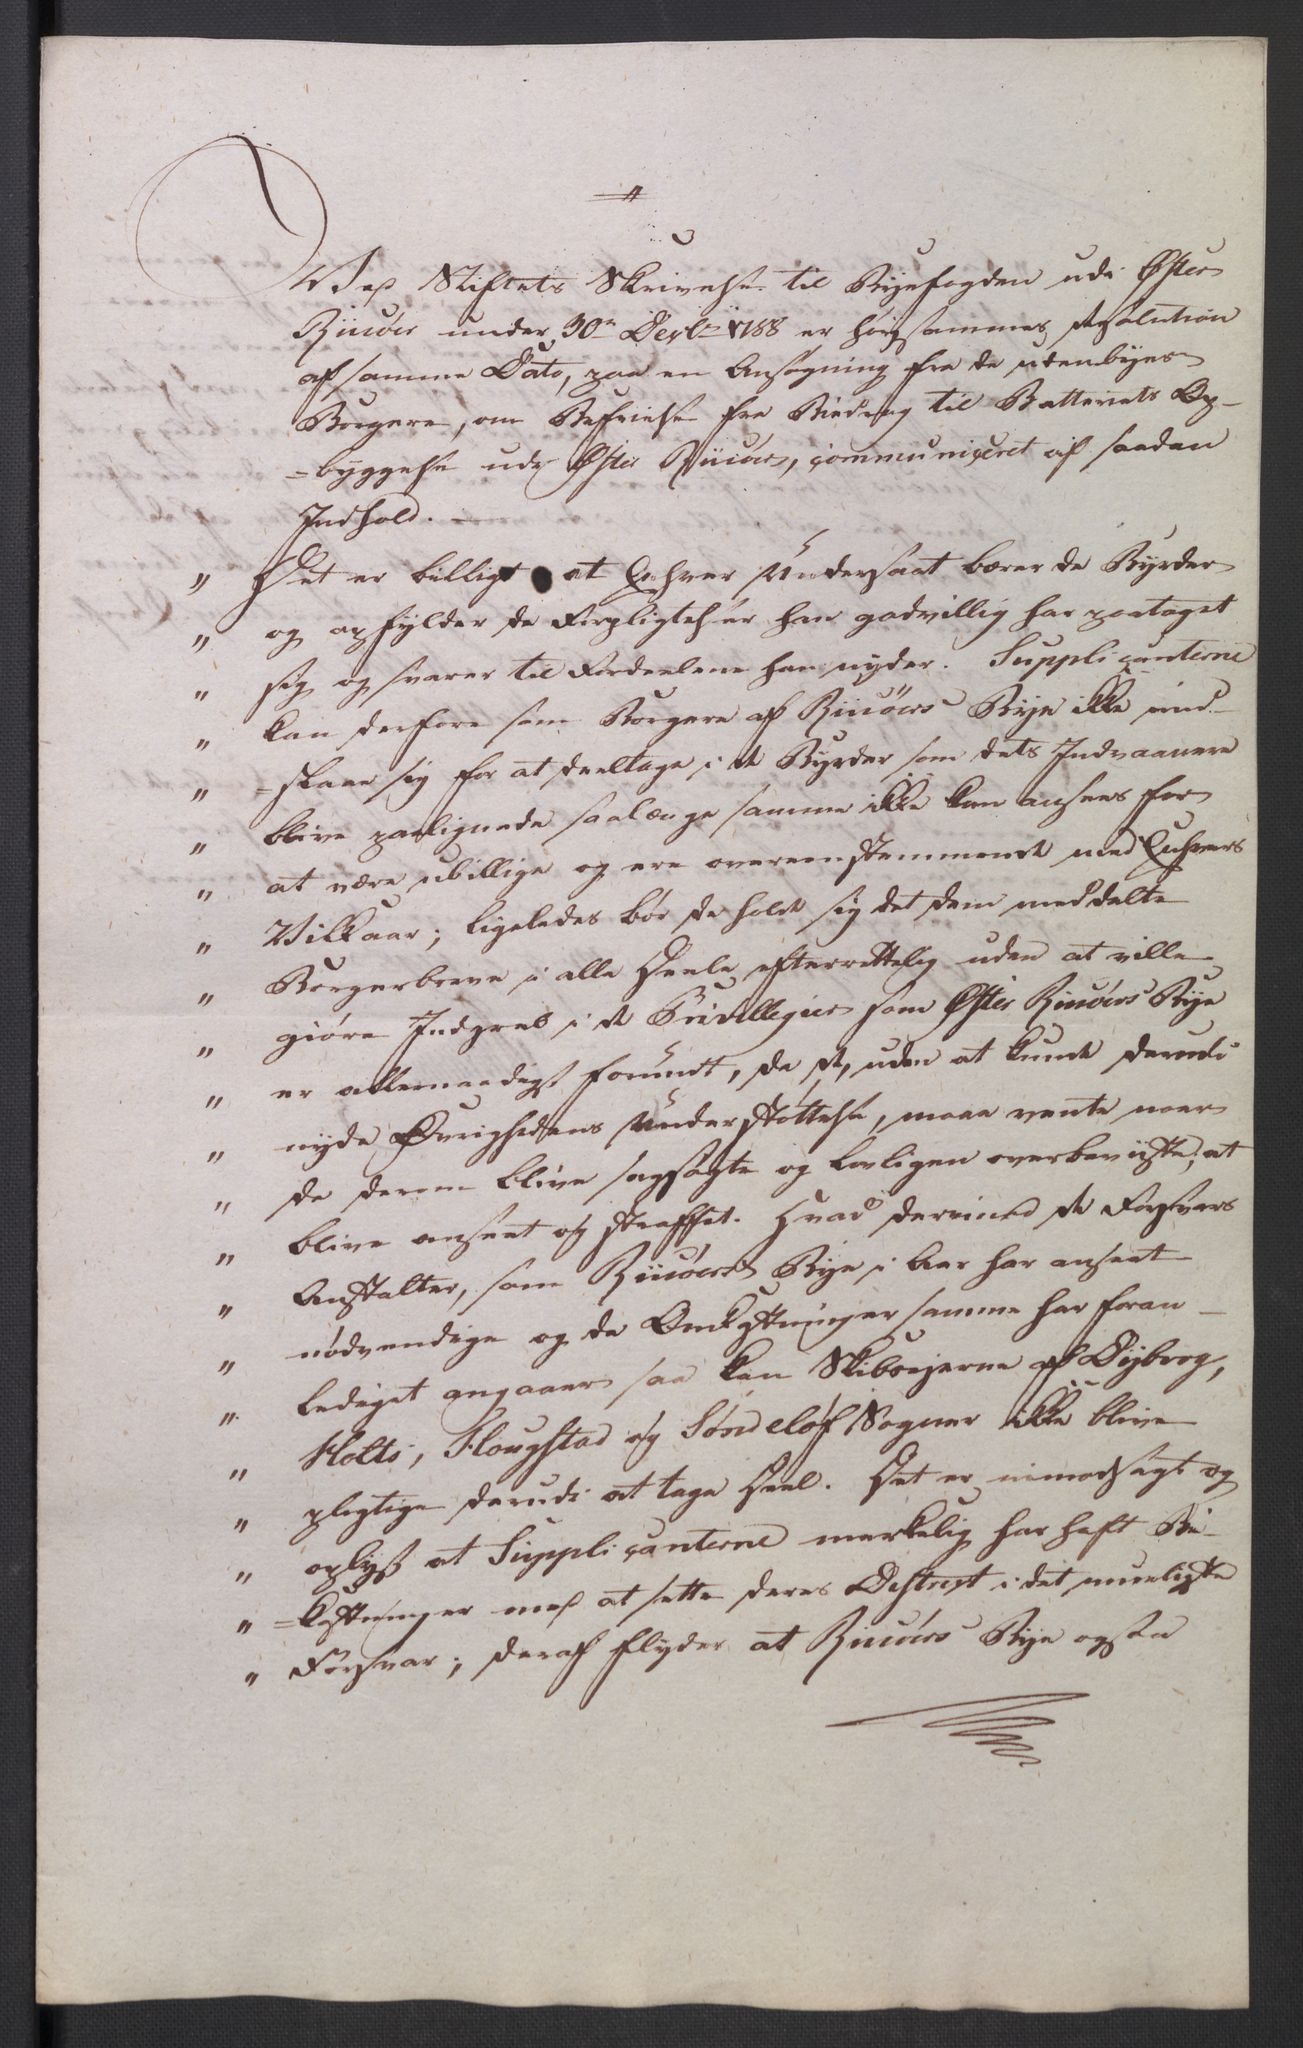 Ved Stiftets Skrivelse til Byefogden udi Øster
Riisöer under 30te Decbr 1788 er høysammes Resolution
af samme Dato, paa en Ansøgning fra de udenbyes
Borgere, om Befrielse fra Bidrag til Batteriets Op-
=byggelse udi Øster Riisöer, communiceret af saadan
Indhold. —
" Det er billigt at Enhver Undersaat bærer de Byrder
" og opfylder de Forpligtelser han godvillig har paataget
" sig og svarer til Fordeelene han nyder. Supplicanterne
" kan derfore som Borgere af Riisöers Bye ikke und-
" =slaae sig for at deeltage i de Byrder som dets Indvaanere
" blive paalignede saalænge samme ikke kan ansees for
" at være ubillige og ere overeenstemmende med Enhvers
" Vilkaar; ligeledes bør de holde sig det dem meddelte
" Borgerbreve i alle Deele efterrettelig uden at ville
" giøre Indgreb i de Privilegier som Øster Riisöers Bye
" er allernaadigst forundt, da de, uden at kunde derudi
" nyde Øvrighedens Understøttelse, maae vente naar
" de derom blive sagsøgte og lovligen overbeviiste, at
" blive anseet og straffet. Hvad derimod de Forsvars
" Anstalter, som Riisöers Bye i Aar har anseet
" nødvendige og de Omkostninger samme har foran-
" lediget angaaer saa kan Skibseierne af Dijbvog,
" Holts, Flougstad og Søndeløf Sogner ikke blive
" pligtige derudi at tage Deel. Det er uimodsagt og
" oplyst at Supplicanterne merkelig har haft Be-
" =kostninger med at sette deres District i det mueligste
" Forsvar; deraf flyder at Riisöers Bye ogsaa